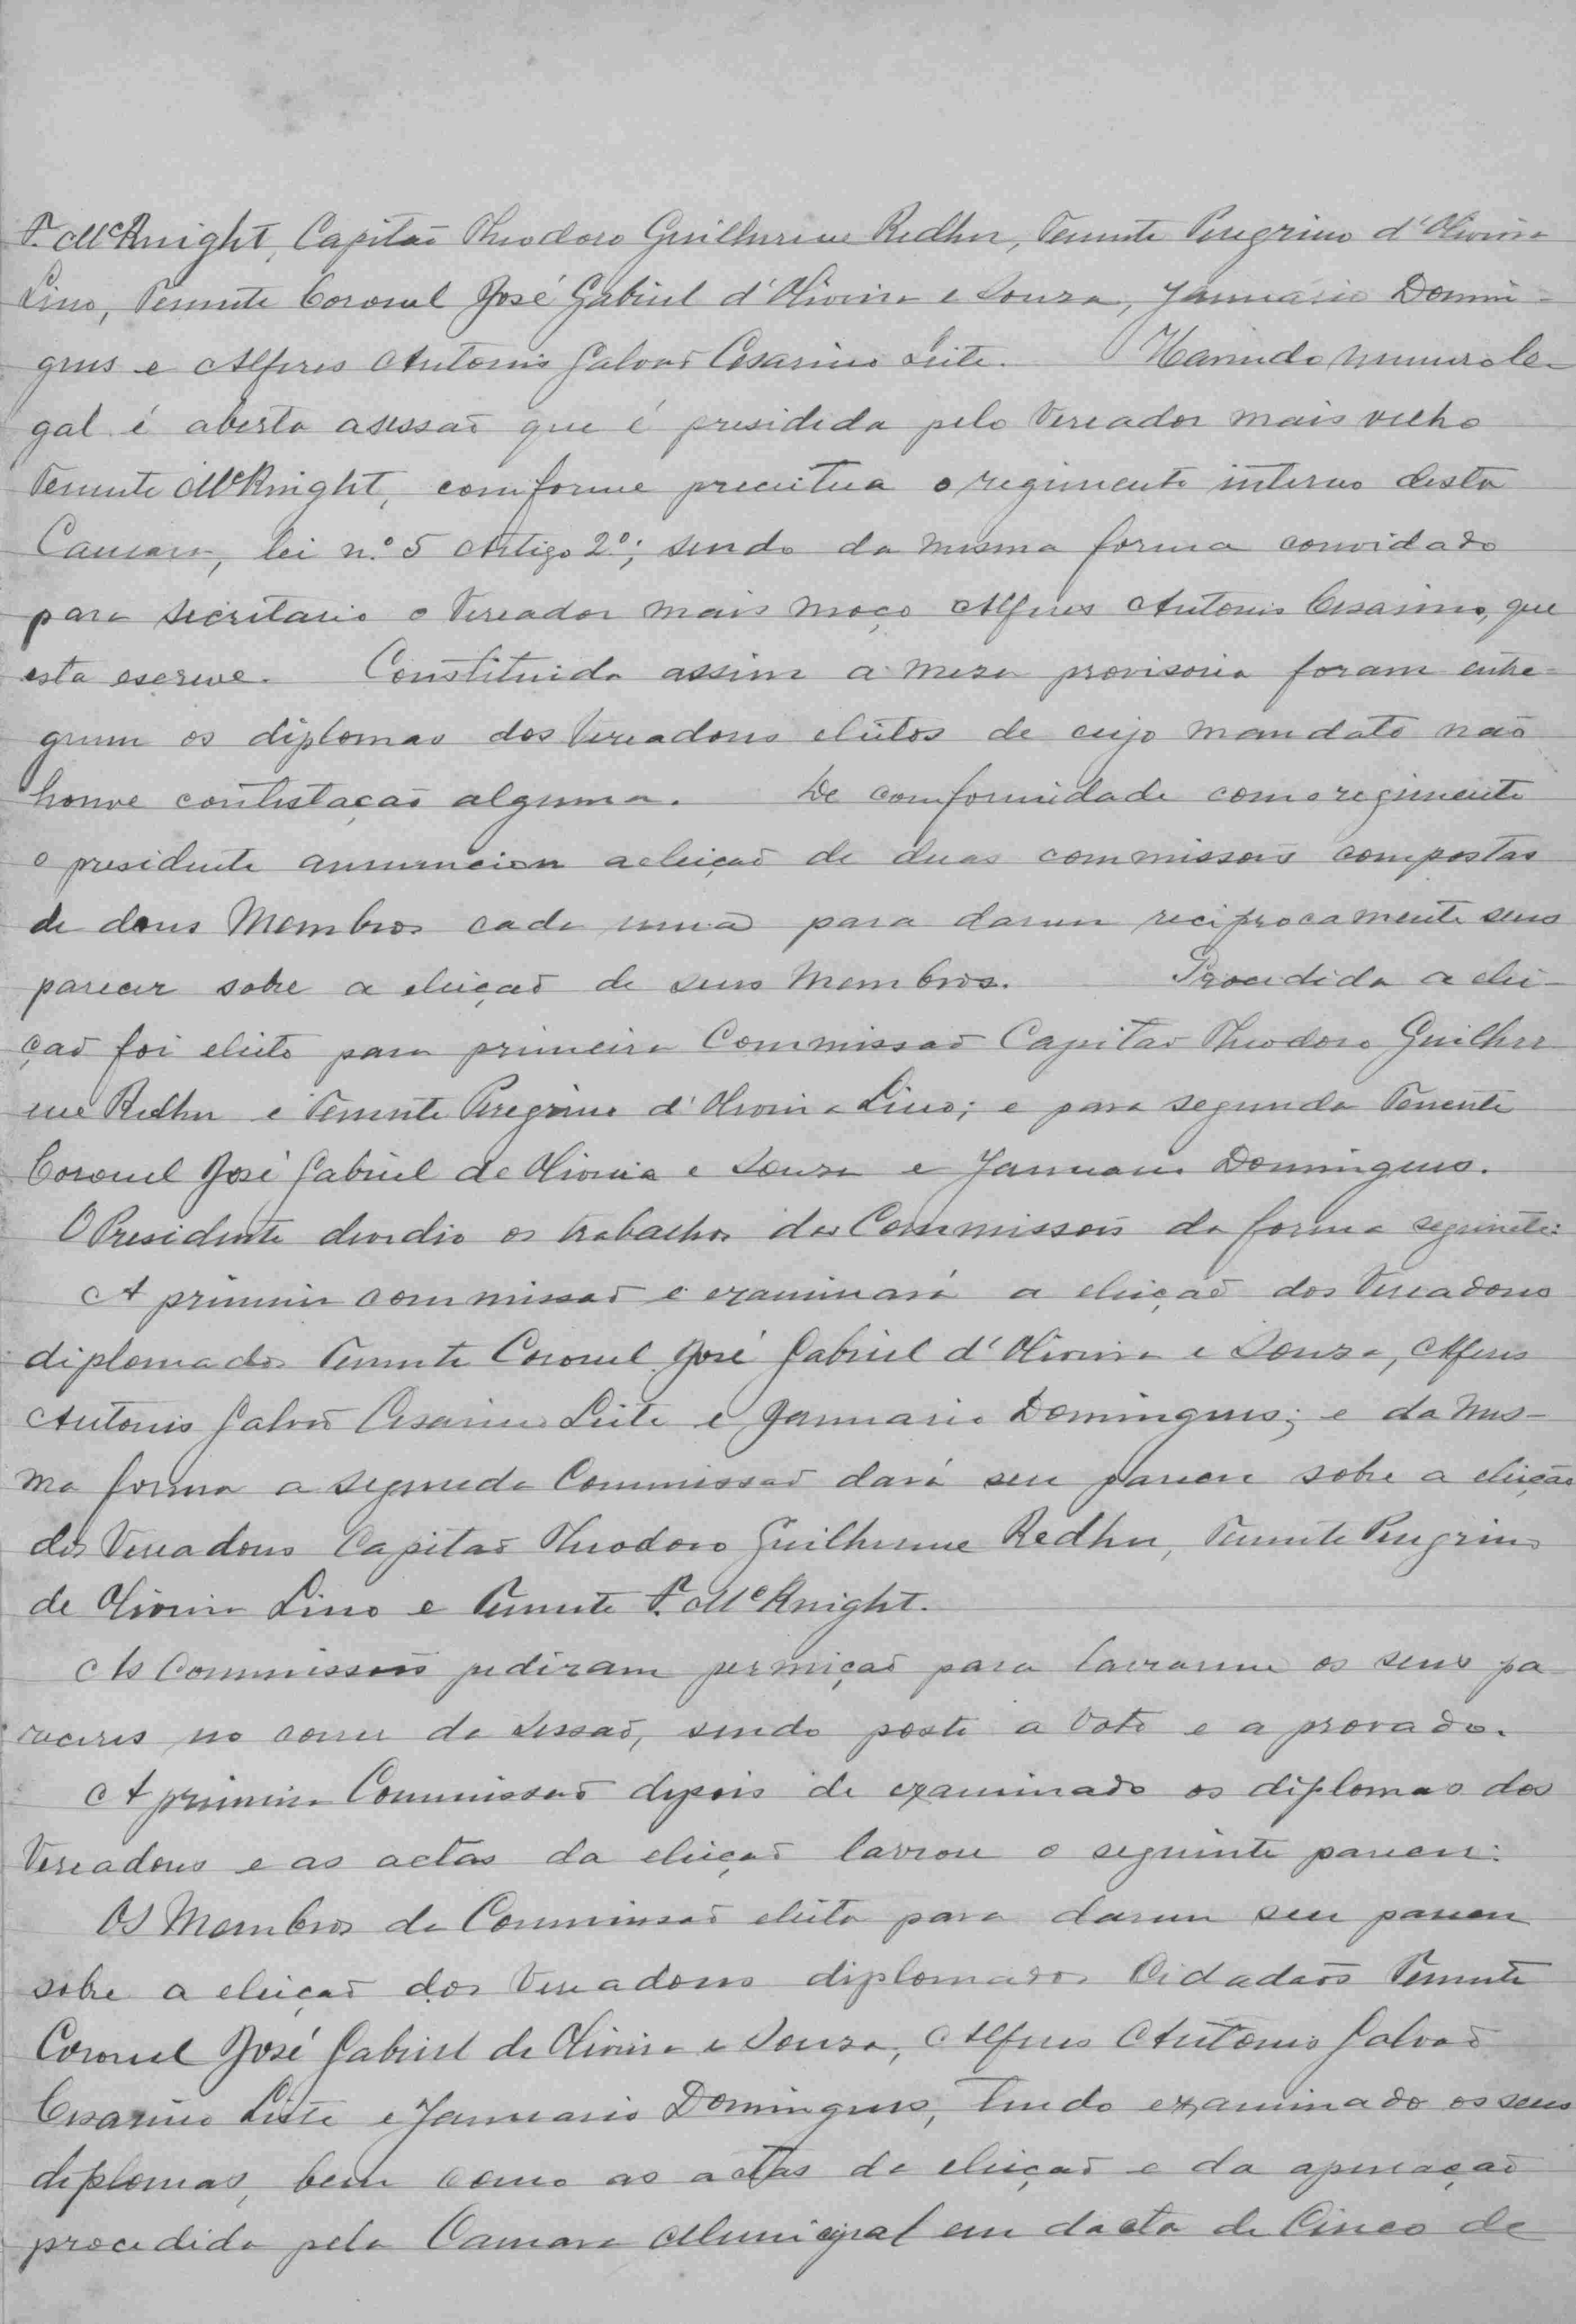 T. McKnight, Capitaõ Theodoro Guilherme Redher, Tenente Peregrino d'Oliveira
Lino, Tenente Coronel José Gabriel d'Oliveira e Souza, Januario Domin-
gues e Alferes Antonio Galvaõ Cesarino Leite. Havendo numero le-
gal é aberta a sessaõ que é presidida pelo Vereador mais velho
Tenente McKnight, comforme preceitua o regimento interno desta
Camara, lei n.º 5 Artigo 2º; sendo da mesma forma convidado
para secretario o Vereador mais moço Alferes Antonio Cesarino, que
esta escreve. Constituida assim a meza provisoria foram entre-
guem os diplomas dos Vereadores eleitos de cujo mandato naõ
houve contestaçaõ alguma. De comformidade com o regimento
o presidente annunciou a eleiçaõ de duas commissoẽs compostas
de dous Membros cada uma para darem reciprocamente seus
parecer sobre a eleiçaõ de seus Membros. Procedida a elei-
çaõ foi eleito para primeira Commissaõ Capitaõ Theodoro Guilher
me Redher e Tenente Peregrino d'Oliveira Lino; e para segunda Tenente
Coronel José Gabriel de Oliveira e Souza e Januario Domingues.
O Presidente devedio os trabalhos das Commissoẽs da forma seguinte:
A primeira commissaõ e examinará a eleiçaõ dos Vereadores
diplomados Tenente Coronel José Gabriel d'Oliveira e Souza, Alferes
Antonio Galvaõ Cesarino Leite e Januario Domingues; e da mes-
ma forma a segunda Commissaõ dará seu parecer sobre a eleiçaõ
dos Vereadores Capitaõ Theodoro Guilherme Redher, Tenente Peregrino
de Oliveira Lino e Tenente T. McKnight.
As Commissoẽs pediram permiçaõ para lavrarem os seus pa
receres no correr da Sessaõ, sendo posto a Voto e a provado.
A primeira Commissaõ depois de examinado os diplomas dos
Vereadores e as actas da eleiçaõ lavrou o seguinte parecer:
Os Membros da Commissaõ eleita para darem seu parecer
sobre a eleiçaõ dos Vereadores diplomados Cidadaõs Tenente
Coronel José Gabriel de Oliveira e Souza, Alferes Antonio Galvaõ
Cesarino Leite e Januario Domingues, tendo examinado os seus
diplomas, bem como as actas da eleiçaõ e da apuraçaõ
procedida pela Camara Municipal em dacta de Cinco de